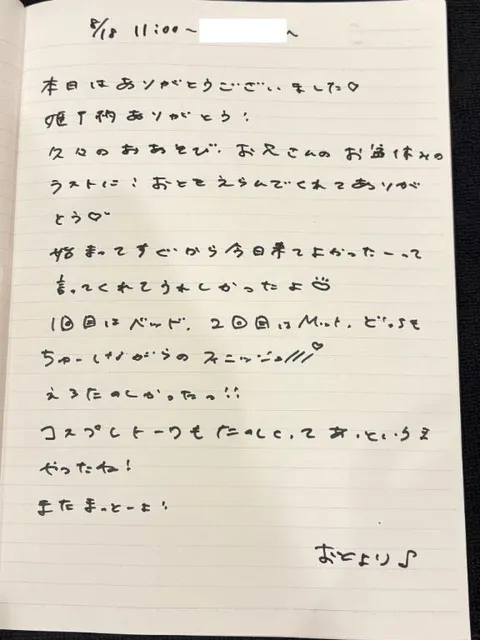 8/18 11:00~ ~
本日はありがとうございました♡
姫予約ありがとう!
久々のおあそび、お兄さんのお盆休みの
ラストに!おとをえらんでくれてありが
とう♡
始まってすぐから今日来てよかったーって
言ってくれてうれしかったよ
1回目はベッド、2回目はMット、どっちも
ちゅーしながらのフィニッシュ///♡
えろたのしかったっ!!
コスプレトークもたのしくってあっというま
やったね!
またまっとーよ!
おとより♪